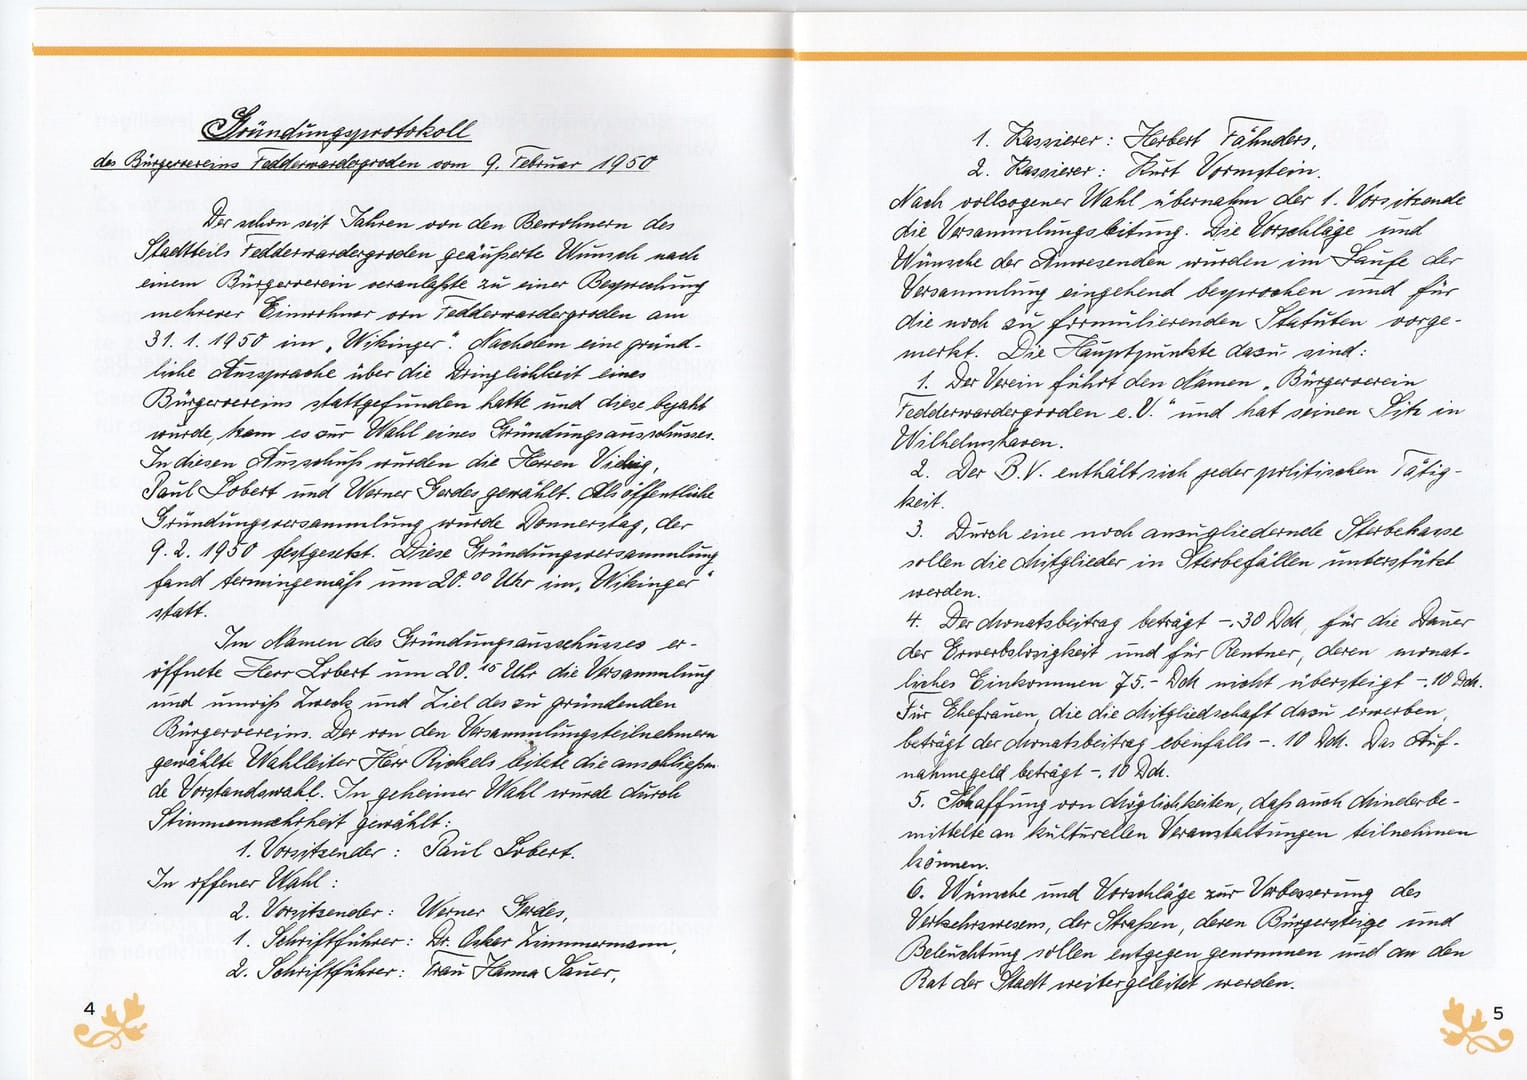 Gründungsprotokoll
des Bürgervereins Fedderwardegroden vom 9. Februar 1950
Der schon seit Jahren von den Bewohnern des
Stadtteils Fedderwardergroden geäußerte Wunsch nach
einem Bürgerverein veranlaßte zu einer Besprechung
mehrerer Einwohner von Fedderwardergroden am
31. 1. 1950 im „Wikinger". Nachdem eine gründ-
liche Aussprache über die Dringlichkeit eines
Bürgervereins stattgefunden hatte und diese bejaht
wurde, kam es zur Wahl eines Gründungsausschusses.
In diesen Ausschuß wurden die Herren
Paul Lobert und Werner Gerdes gewählt. Als öffentliche
Gründungsversammlung wurde Donnerstag, der
9. 2. 1950 festgesetzt. Diese Gründungsversammlung
fand termingemäß um 20.00 Uhr im „Wikinger"
statt.
Im Namen des Gründungsausschusses er-
öffnete Herr Lobert um 20.15 Uhr die Versammlung
und umriß Zweck und Ziel des zu gründenden
Bürgervereins. Der von den Versammlungsteilnehmern
gewählte Wahlleiter Herr Rickels leitete die anschließen-
de Vorstandswahl. In geheimer Wahl wurde durch
Stimmenmehrheit gewählt:
1. Vorsitzender : Paul Lobert.
In offener Wahl :
2. Vorsitzender : Werner Gerdes,
1. Schriftführer : Dr. Oskar Zimmermann,
2. Schriftführer : Frau Hanna Sauer,
4
1. Kassierer : Herbert Fähnders,
2. Kassierer : Kurt Vormstein.
Nach vollzogener Wahl übernahm der 1. Vorsitzende
die Versammlungsleitung. Die Vorschläge und
Wünsche der Anwesenden wurden im Laufe der
Versammlung eingehend besprochen und für
die noch zu formulierenden Statuten vorge-
merkt. Die Hauptpunkte dazu sind :
1. Der Verein führt den Namen „Bürgerverein
Fedderwardergroden e.V." und hat seinen Sitz in
Wilhelmshaven.
2. Der B.V. enthält sich jeder politischen Tätig-
keit.
3. Durch eine noch anzugliedernde Sterbekasse
sollen die Mitglieder in Sterbefällen unterstützt
werden.
4. Der Monatsbeitrag beträgt -.30 DM, für die Dauer
der Erwerbslosigkeit und für Rentner, deren monat-
liches Einkommen 75.- DM nicht übersteigt -.10 DM.
Für Ehefrauen, die die Mitgliedschaft dazu erwerben,
beträgt der Monatsbeitrag ebenfalls -.10 DM. Das Auf-
nahmegeld beträgt -.10 DM.
5. Schaffung von Möglichkeiten, daß auch Minderbe-
mittelte an kulturellen Veranstaltungen teilnehmen
können.
6. Wünsche und Vorschläge zur Verbesserung des
Verkehrswesens, der Straßen, deren Bürgersteige und
Beleuchtung sollen entgegen genommen und an den
Rat der Stadt weitergeleitet werden.
5